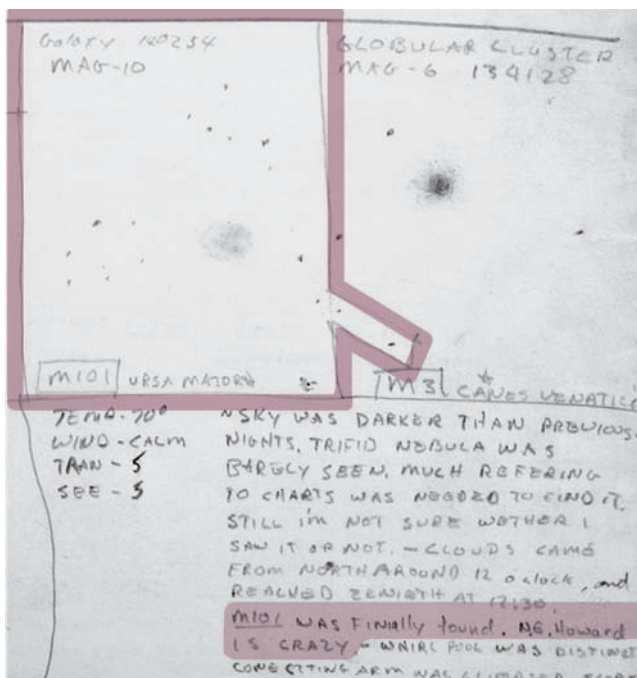 Galaxy 140254
MAG-10
GLOBULAR CLUSTER
MAG-6 134128
M101 URSA MAJORIS
M3 CANES VENATICI
TEMP-70°
WIND-CALM
TRAN-5
SEE-5
SKY WAS DARKER THAN PREVIOUS
NIGHTS. TRIFID NEBULA WAS
BARELY SEEN. MUCH REFERING
TO CHARTS WAS NEEDED TO FIND IT.
STILL I'M NOT SURE WETHER I
SAW IT OR NOT. - CLOUDS CAME
FROM NORTH AROUND 12 o clock, and
REACHED ZENIGTH AT 12:30.
M101 WAS Finially found. NE. Howard
IS CRAZY - WHIRL POOL WAS DISTINCT
ARM WAS GLIMPSED